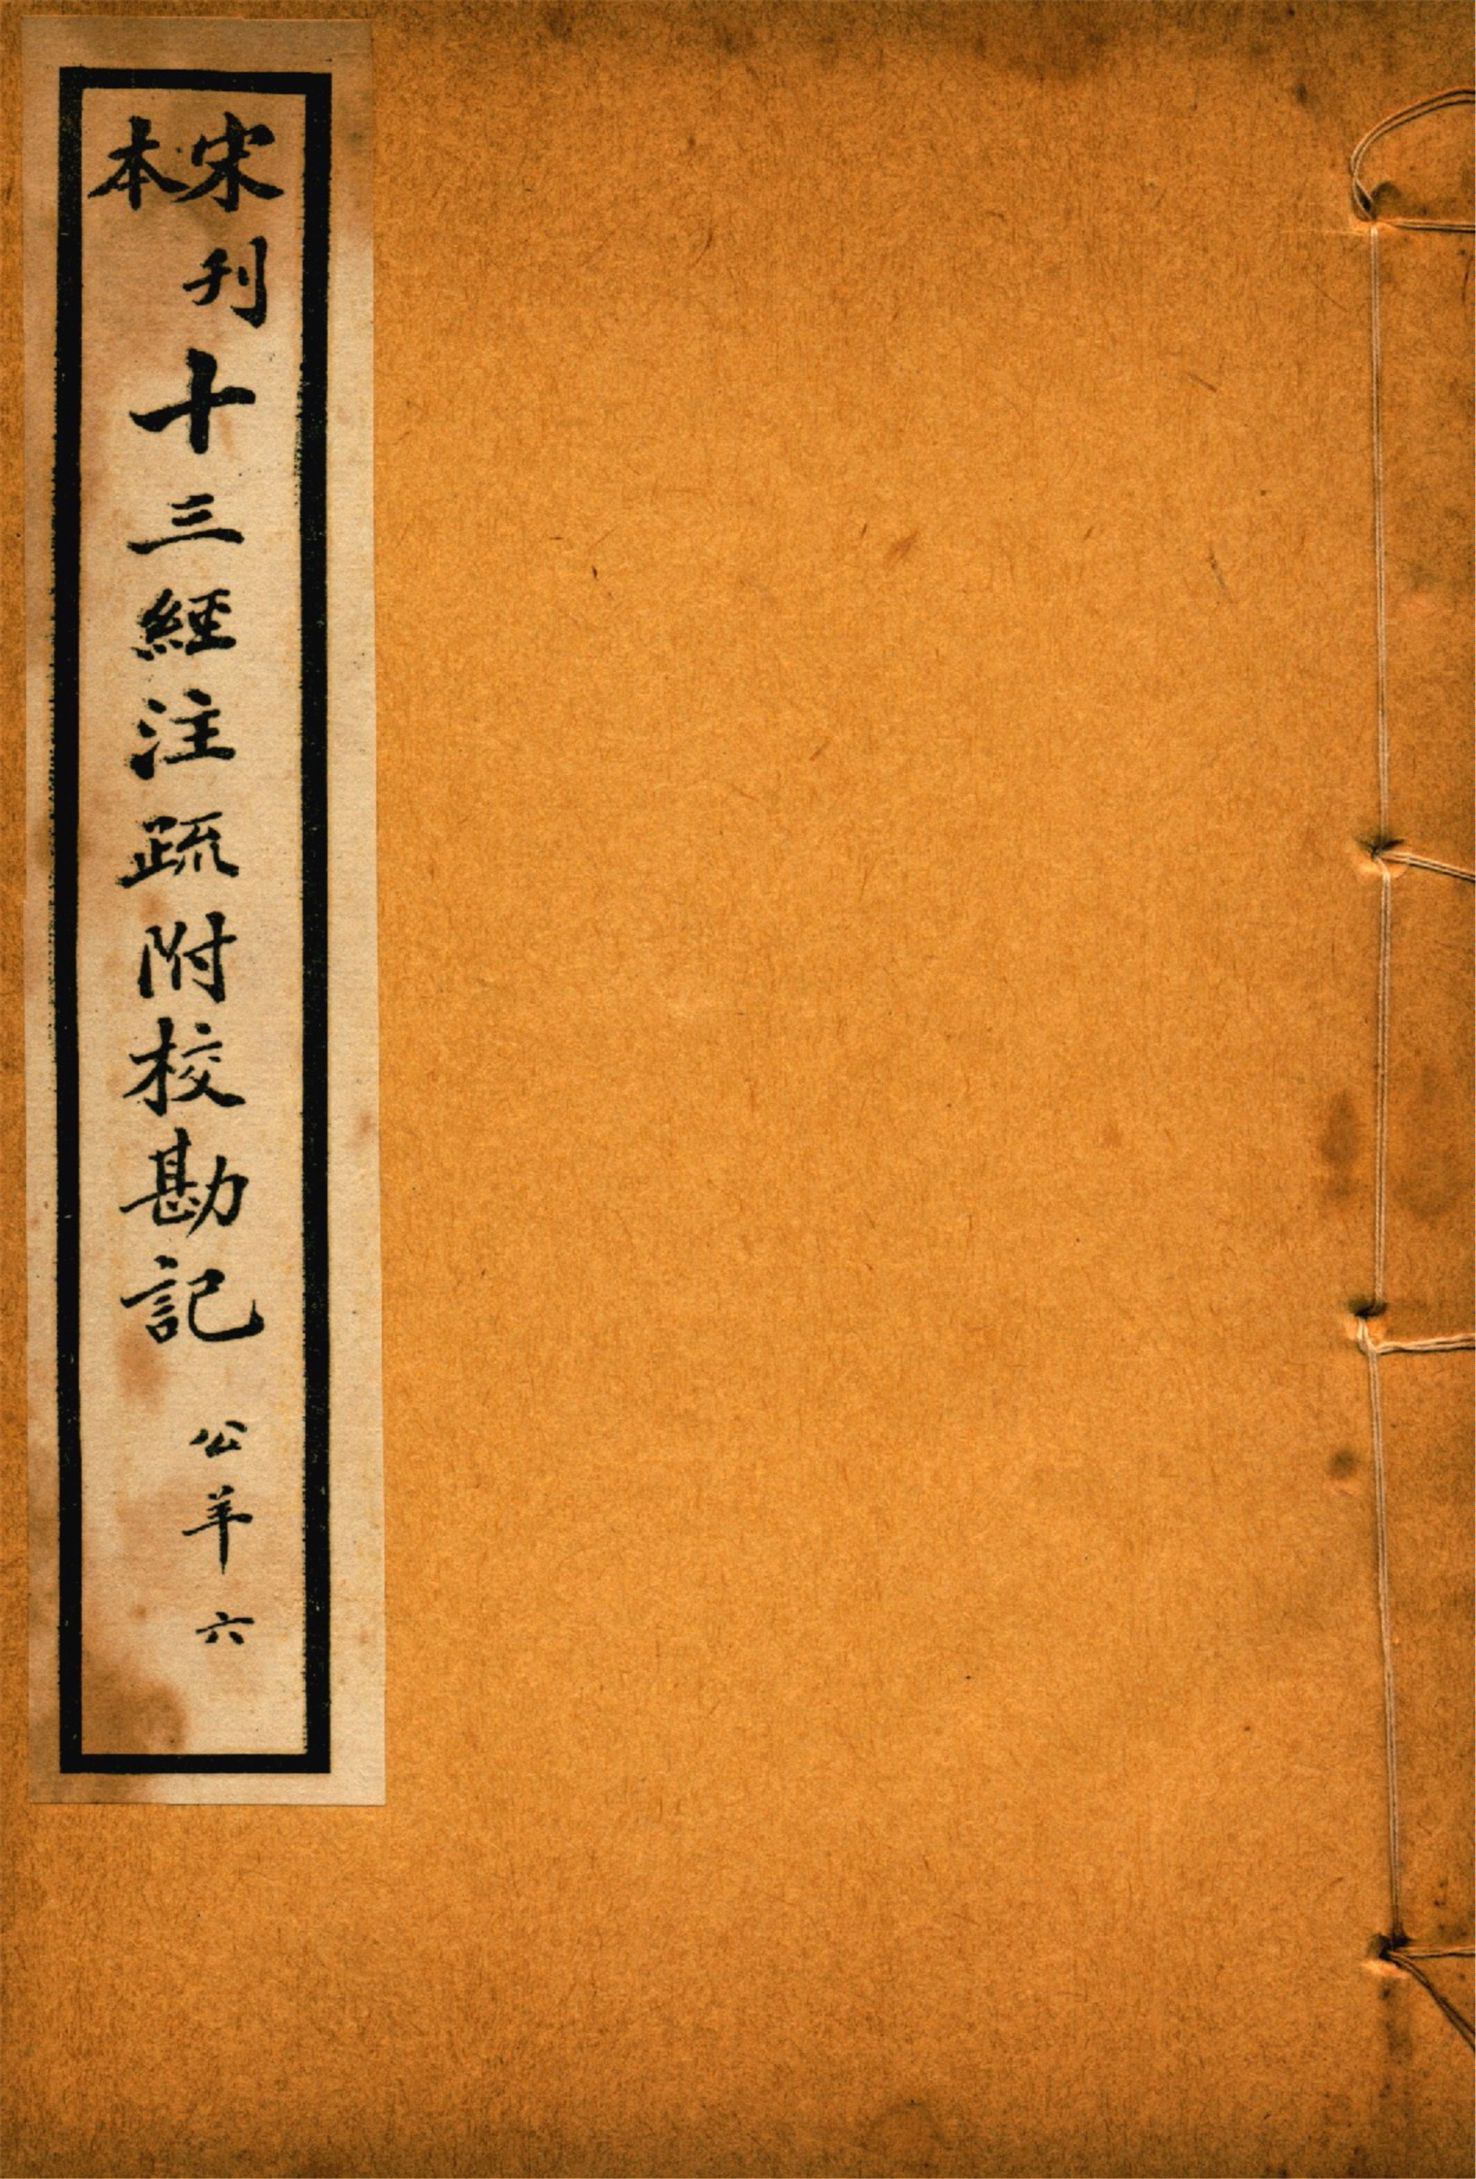 宋刊本
十三經注疏附校勘記
公羊六